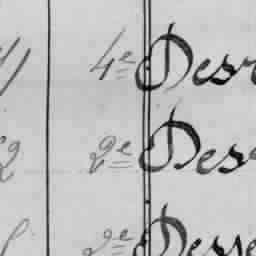 4e Desr
2e Des
2e Desse